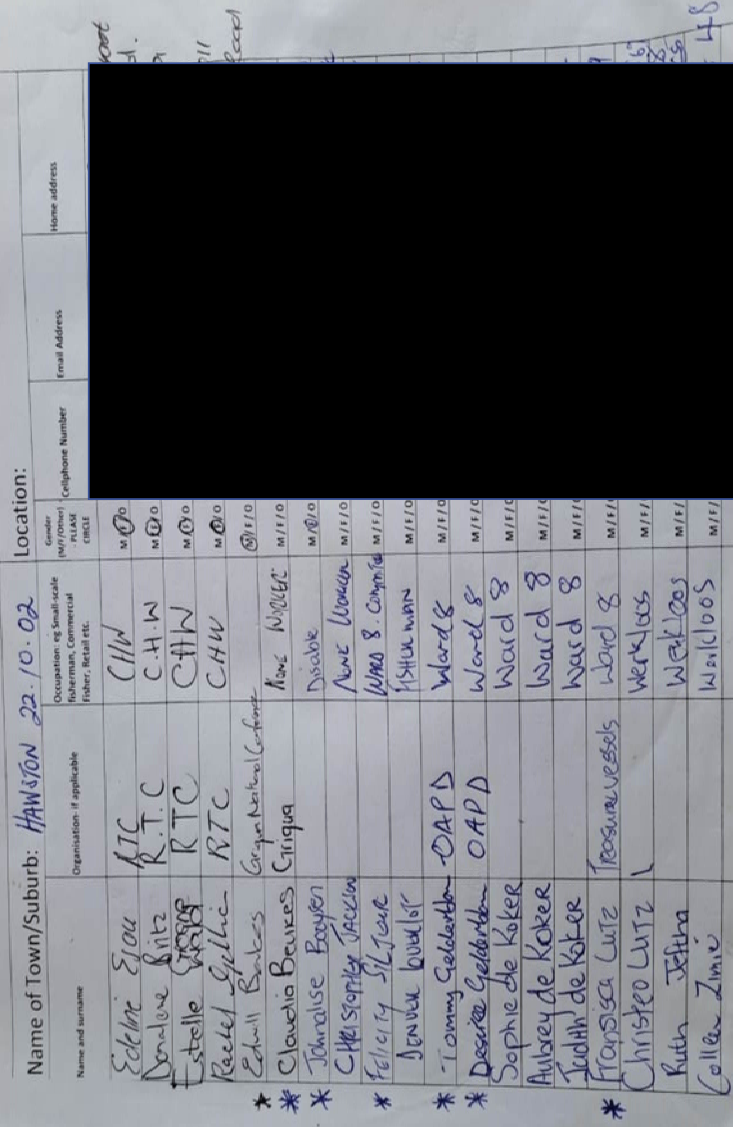 Name of Town/Suburb: HAWSTON 22.10.02 Location:
Name and surname Organisation- if applicable Occupation: eg Small-scale fisherman, Commercial fisher, Retail etc. Gender (M/F/Other) - PLEASE CIRCLE Cellphone Number Email Address Home address
Edeline Esau RTC CHW M/F/O
Donaline Britz R.T.C C.H.W M/F/O
Estelle RTC CHW M/F/O
Rachel RTC CHW M/F/O
* Edwill Griqua National Conference M/F/O
* Claudia Beukes Griqua None Worker M/F/O
* Johnalise Booysen Disable M/F/O
CHRISTOPHER JACKSON None Worker M/F/O
* Felicity WARD 8. Committee M/F/O
DENVER FISHERMAN M/F/
* Tommy Gelderbloem OAPD Ward 8 M/F/
* Desiree Gelderbloem OAPD Ward 8 M/F/
Sophie de Koker Ward 8 M/F/
Aubrey de Koker Ward 8 M/F/
Judith de Koker Ward 8 M/F/
* Fransisca Lutz Treasure vessels Ward 8 M/F/
Christeo Lutz Werkloos M/F/
Ruth Jeftha Werkloos M/F/
Colleen Werkloos M/F/